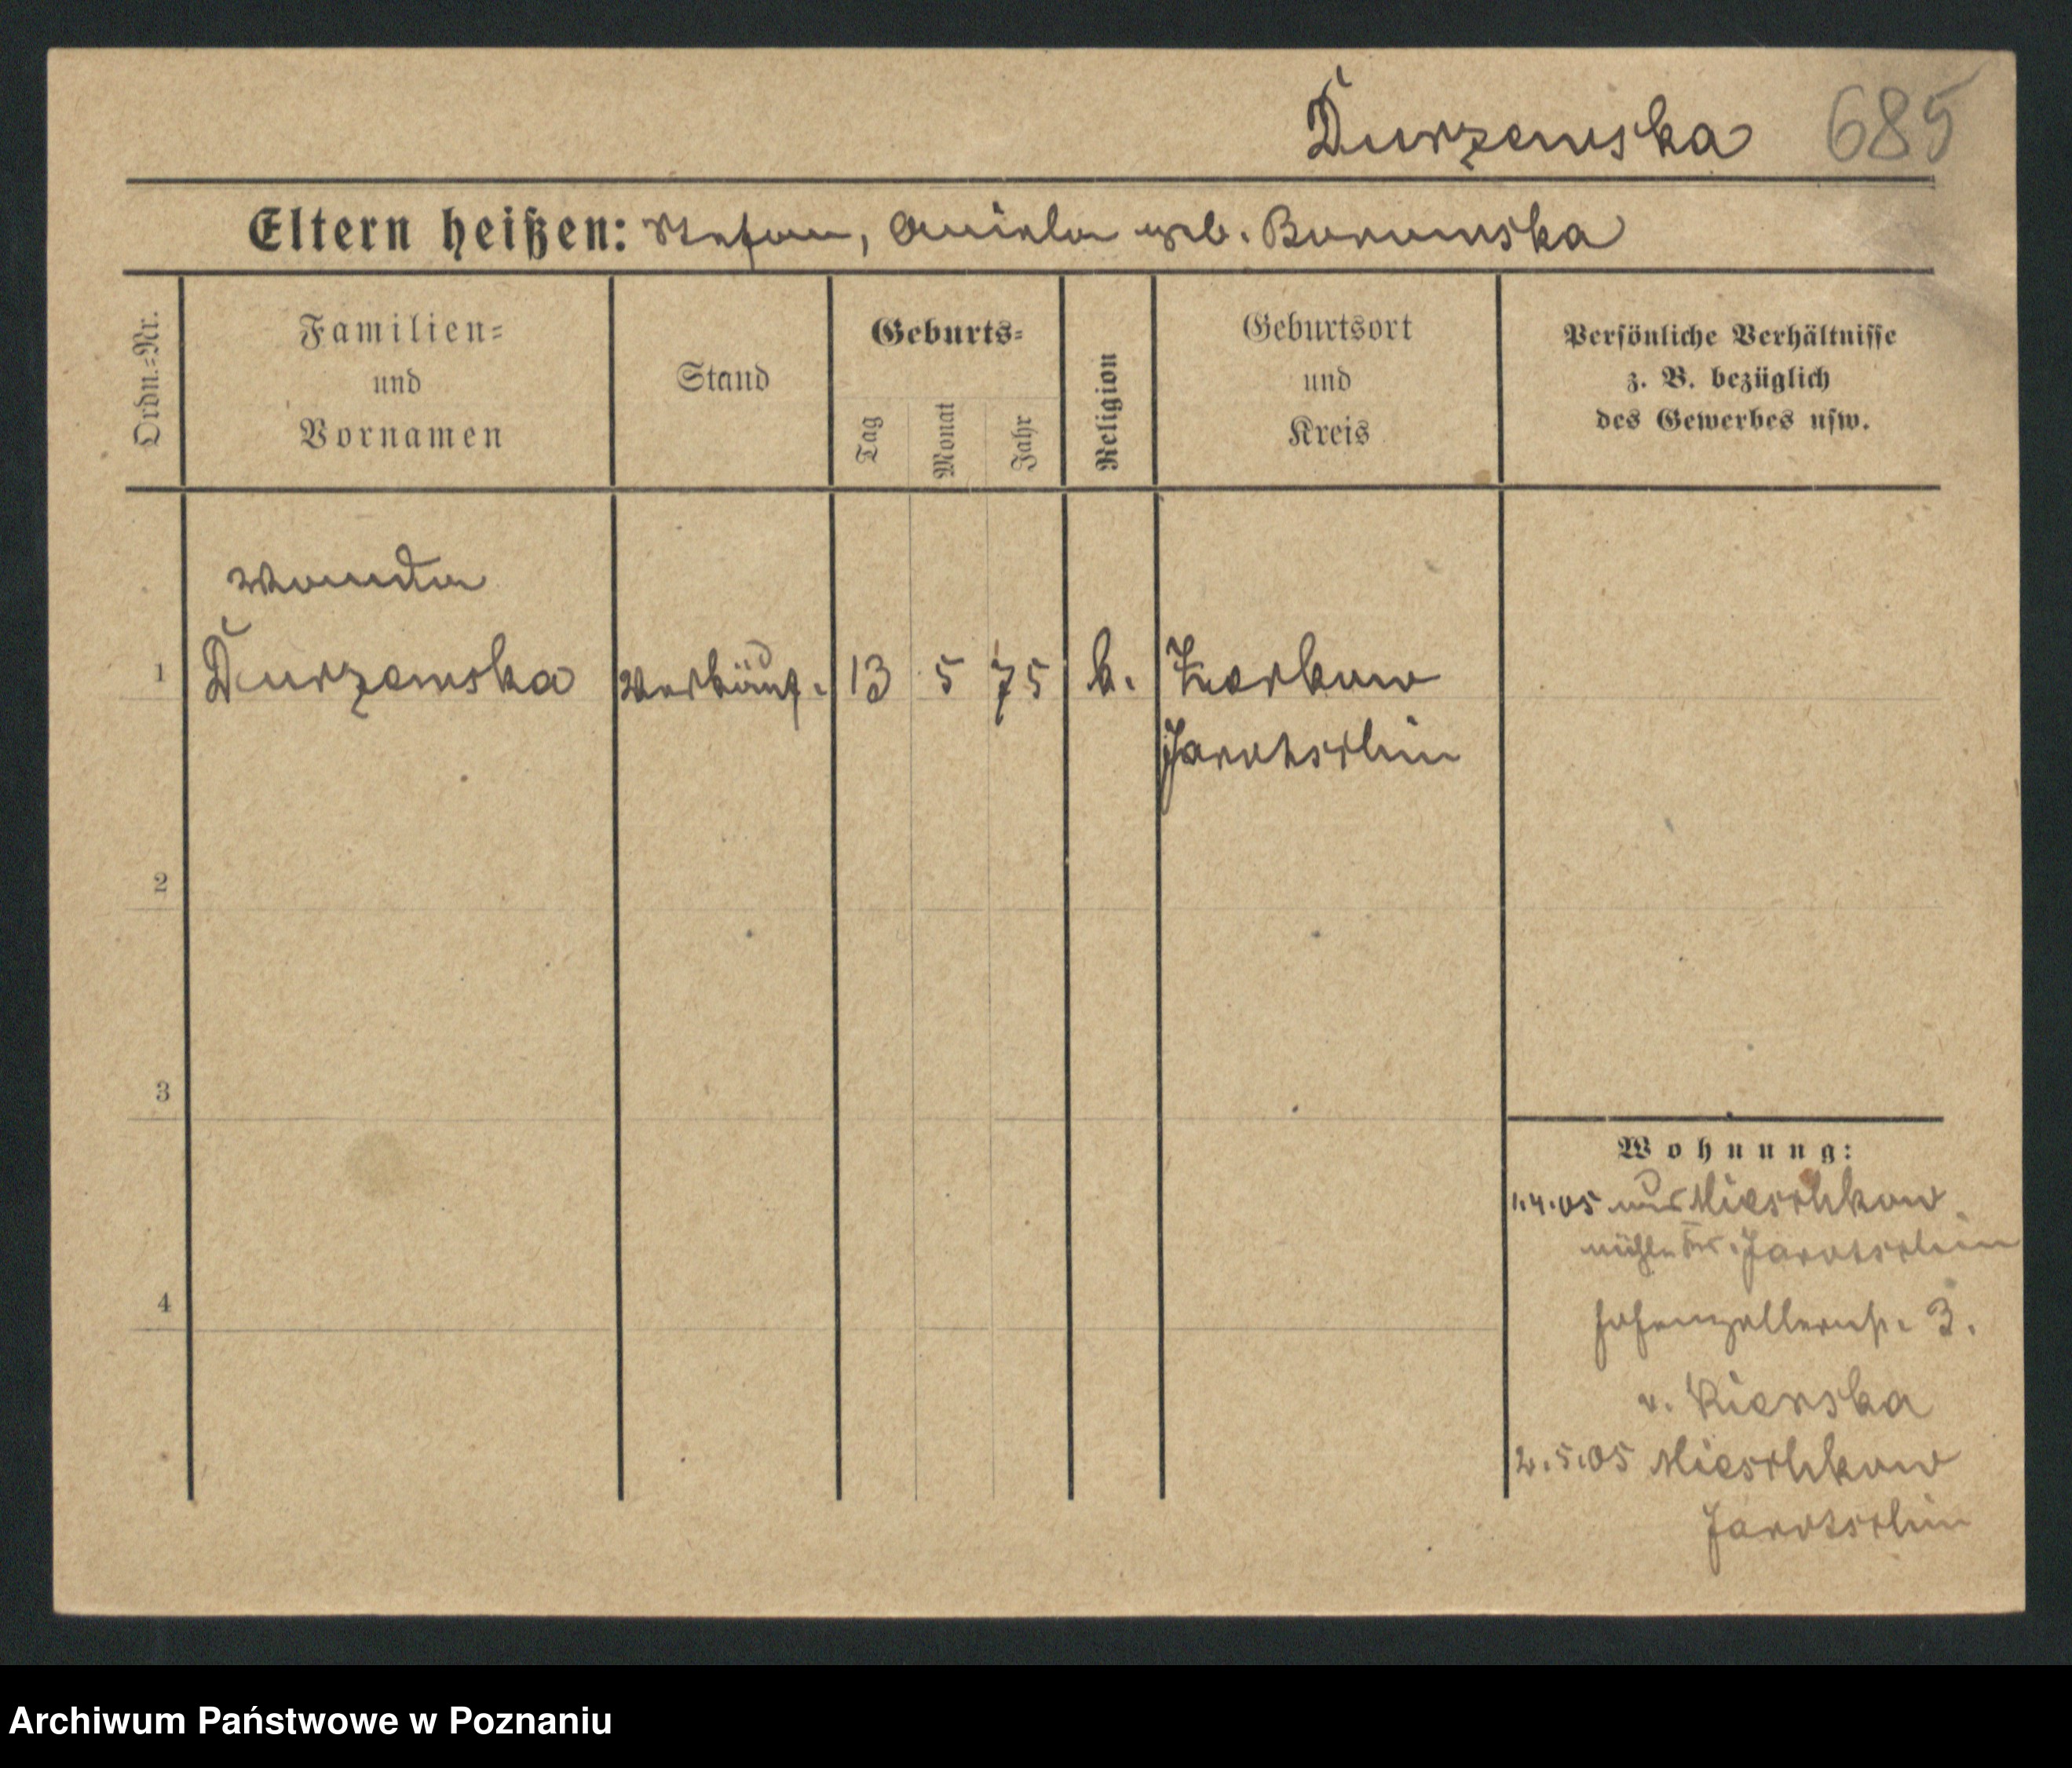 Durzewska 685
Eltern heißen: Stefan, Aniela geb. Borowska
Ordn.=Nr.
Familien=
und
Vornamen
Stand
Geburts=
Tag
Monat
Jahr
Religion
Geburtsort
und
Kreis
Persönliche Verhältnisse
z. B. bezüglich
des Gewerbes usw.
Wanda
1 Durzewska Verkäuf. 13 5 75 k. Zerkow
Jarotschin
2
3
4
Wohnung:
1.4.05 aus Mieschkow
mühle Kr. Jarotschin
Hohenzollernstr. 3.
v.
2.5.05 Mieschkow
Jarotschin
Archiwum Państwowe w Poznaniu